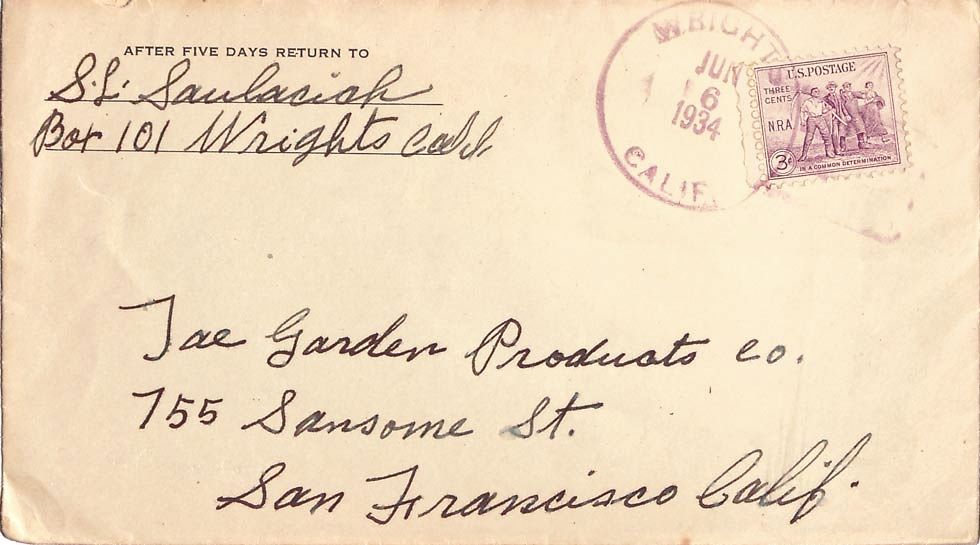 AFTER FIVE DAYS RETURN TO
S.L. Saulacich
Box 101 Wrights Calif
WRIGHT
JUN
6
1934
CALIF.
U.S. POSTAGE
THREE
CENTS
N.R.A.
3¢
IN A COMMON DETERMINATION
Jae Garden Products Co.
755 Sansome St.
San Francisco Calif.